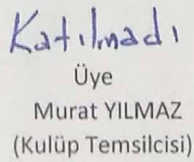 Katılmadı
Üye
Murat YILMAZ
(Kulüp Temsilcisi)